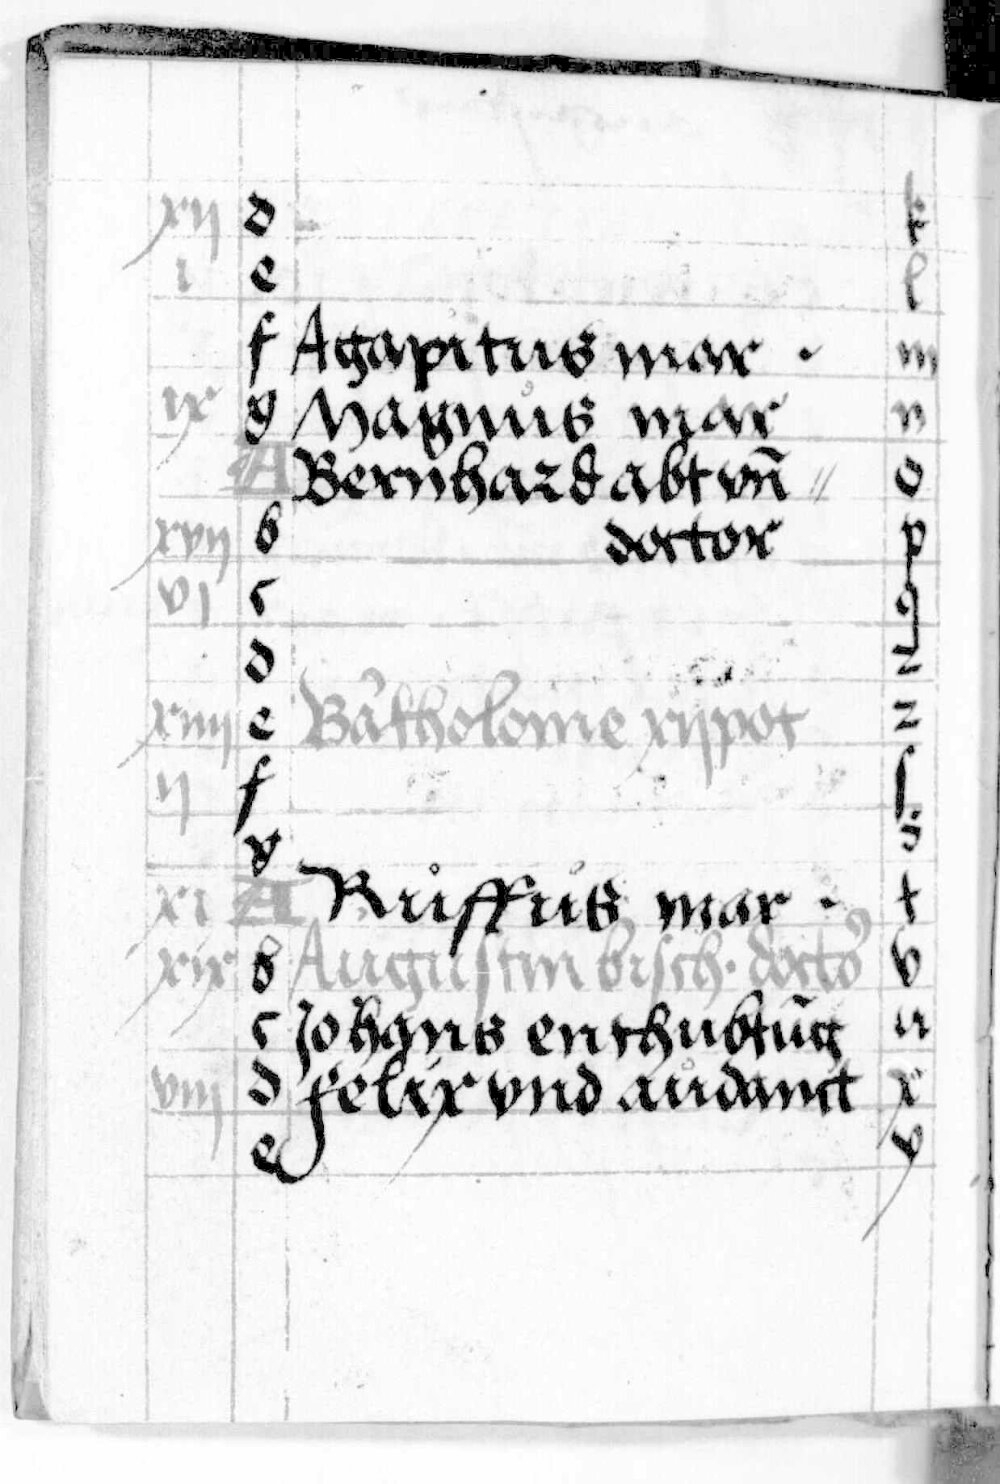 xij d k
i e l
f Agapitus mar · m
ix g Magnus mar n
A Bernhard abt vn̄ // o
xvij b doctor p
vj c q
d
xiiij e Bartholome xijpot
ij f ſ
g s
xi A Ruͦffus mar · t
xix b Augustin bisch· doctoꝰ v
c Johans enthubtūg u
viij d felix vnd audauct x
e y